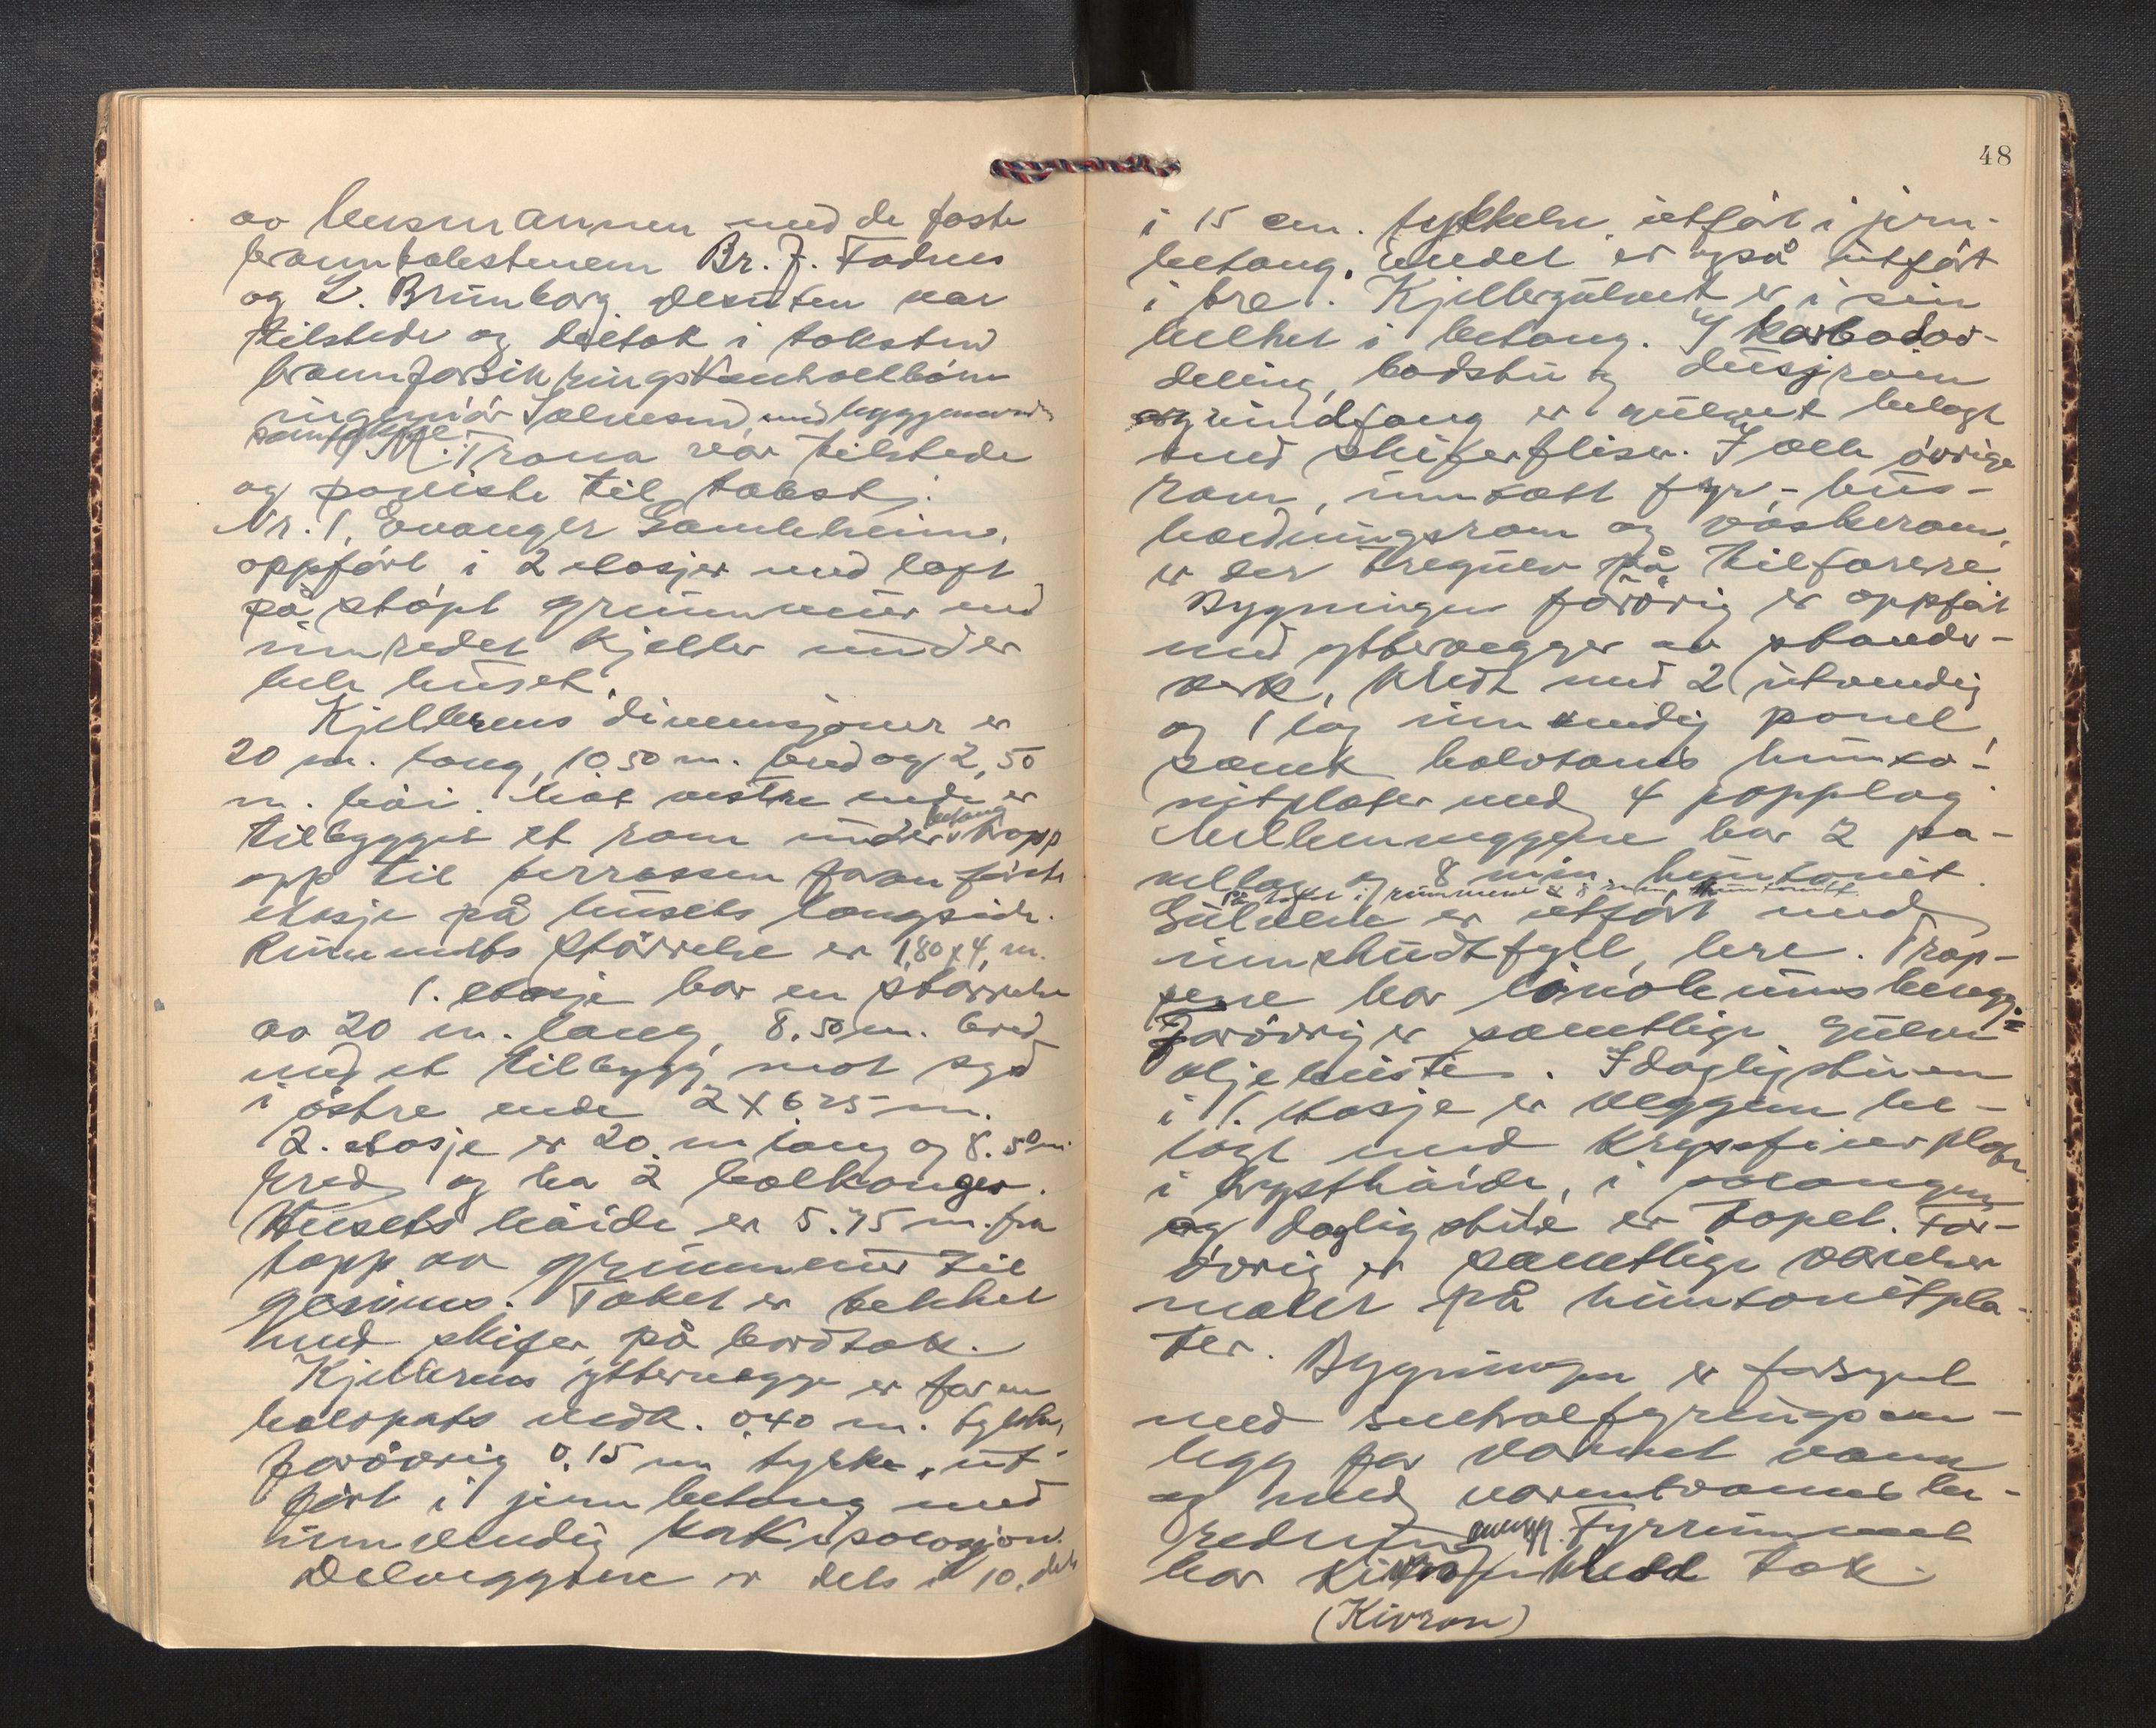 av lensmannen med de faste
branntakstmenn Br. J. Fadnes
og L. Brunborg. Desuten var
tilstede og deltok i taksten
brannforsikrings
ingeniör med byggenevndas
M. Trona var tilstede
og påviste til takst.
Nr. 1, Evanger Samleheim,
oppfört i 2 etasjer med loft
på stöpt grunnmur med
innredet kjeller under
hele huset.
Kjellerens dimensjoner er
20 m. lang, 10,50 m. bred og 2,50
m. hoi. Mot vestre ende er
tilbygget et rom under betong tropp
opp til terrassen foran förste
etasje på husets langside.
Rummets störrelse er 1,80 x 4, m.
1. etasje har en störrelse
av 20 m. lang, 8.50 m. bred
med et tilbygg mot syd
i östre ende 2 x 625 m.
2. etasje er 20 m lang og 8.50 m
bred og ha 2 balkonger.
Husets höide er 5.75 m. fra
topp av grunnmur til
gesims. Taket er tekket
med skifer på bordtak.
Kjellerens yttervegge er for en
halvpart vedk. 0.40 m. tykke,
forövrig 0.15 m tykke, ut-
fört i jernbetong med
innvendig kork isolasjon.
Delveggene er dels i 10, dels
48
i 15 cm. tykkelse, utfört i jern-
betong. Endel er også utfört
i tre. Kjellergulvet er i sin
helhet i betong. I karbador-
deling, badstu og dusjrom
og vindfang er gulvet belagt
med skiferfliser. I alle övrige
rom, unntatt fyr-, hus-
holdningsrom og vaskerom,
er der tregulv på tilfarere.
Bygningen forövrig er oppfört
med yttervegger av stender-
verk, kledt med 2 utvendig
og 1 lag innvendig panel
samt halvtoms hunto-
nitplater med 4 papplag.
Mellemveggene har 2 pa-
nellag og 8 mm. huntonit.
På taket i rummene er 8 mm. huntonitt.
Gulvene er utfört med
innskudtfyll, lere. Trap-
pene har linoleumsbelegg.
Forövrig er samtlige gulv
oljehuste. I dagligstuen
i 1. etasje er veggene be-
lagt med kryssfiner plater
i brysthöide, i salongen
og daglig stue er tapet. For-
övrig er samtlige værelser
malt på huntonitpla-
ter. Bygningen er forsynt
med sentralfyringsan-
legg for varmt vann
og med varmtvannsbe-
redning Fyrrummet
har kledd tak.
(Kivron)